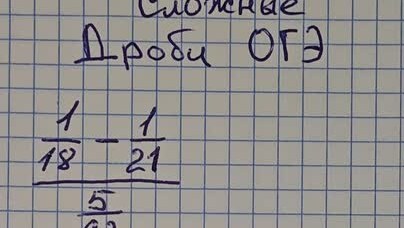 Сложные
Дроби ОГЭ
1/18 - 1/21
5